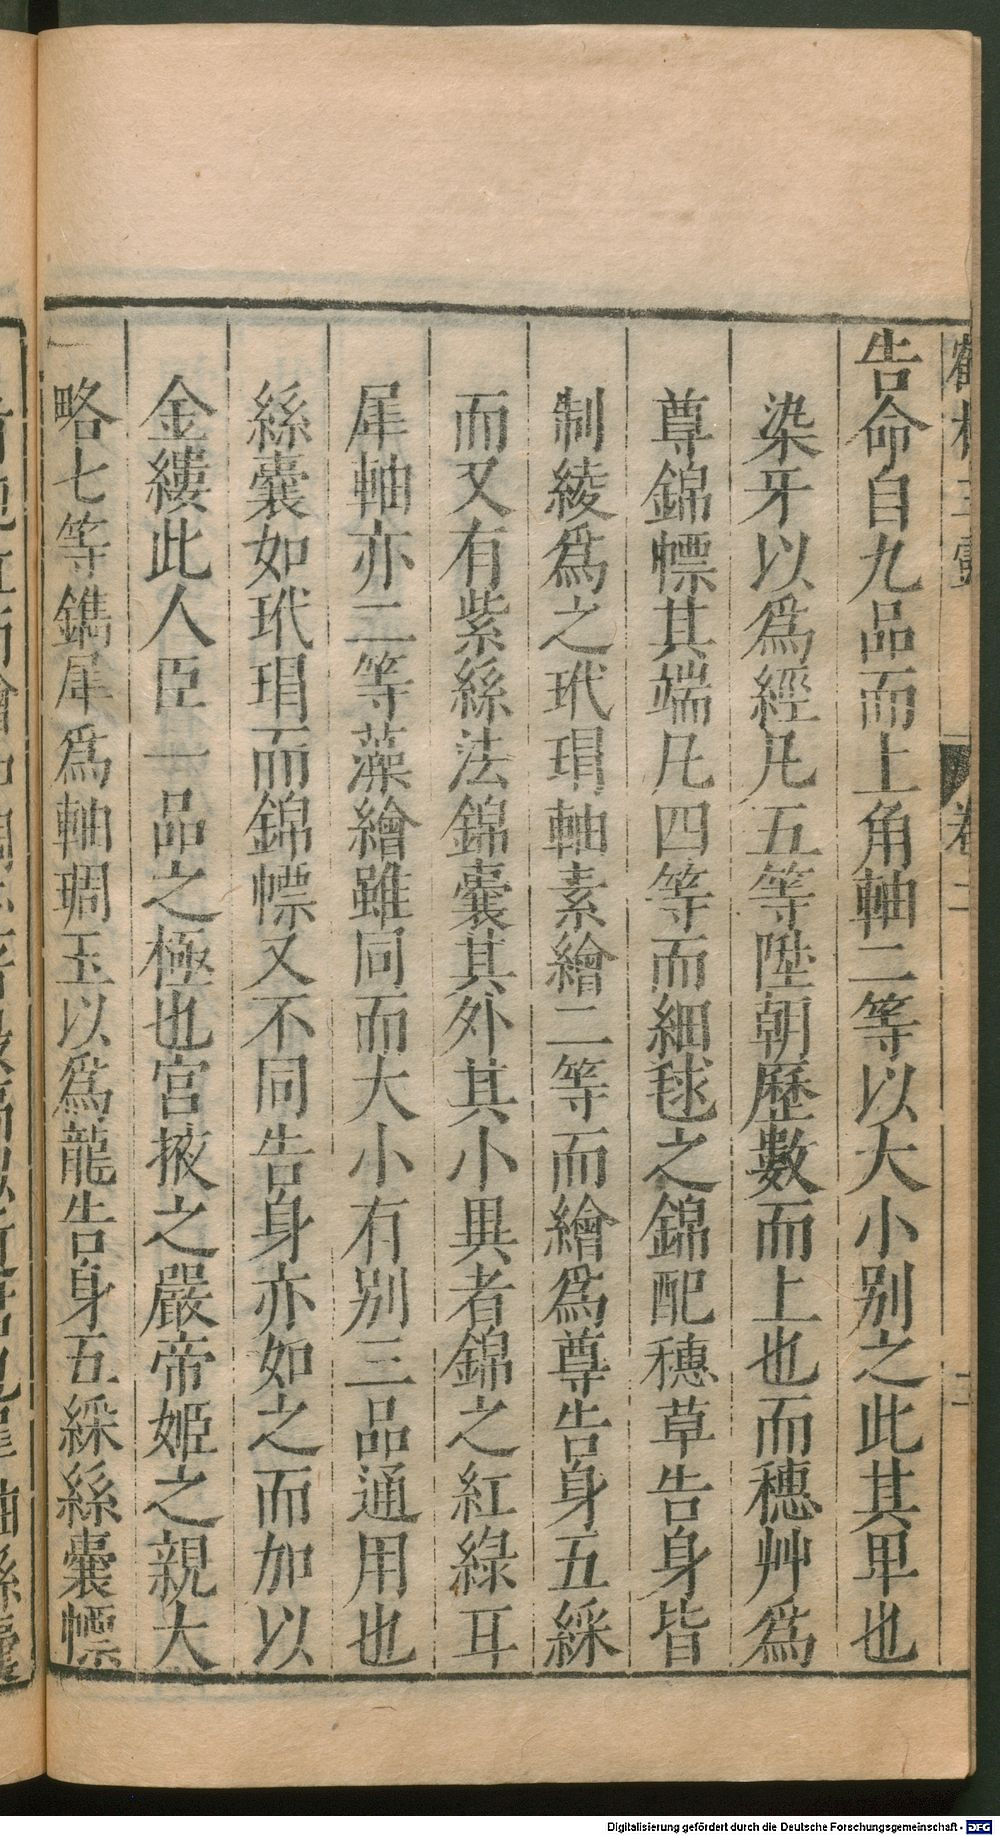 告命自九品而上角軸二等以大小别之此其卑也
染牙以爲經凡五等陞朝歷數而上也而穗艸爲
尊錦幖其端凡四等而細毬之錦配穗草告身皆
制綾爲之玳瑁軸素繪二等而繪爲尊告身五綵
而又有紫絲法錦囊其外其小異者錦之紅綠耳
犀軸亦二等藻繪雖同而大小有别三品通用也
絲囊如玳瑁而錦幖又不同告身亦如之而加以
金縷此人臣一品之極也宮掖之嚴帝姬之親大
略七等鐫犀爲軸琱玉以爲龍告身五綵絲囊幖
卷二
二
Digitalisierung gefördert durch die Deutsche Forschungsgemeinschaft - DFG